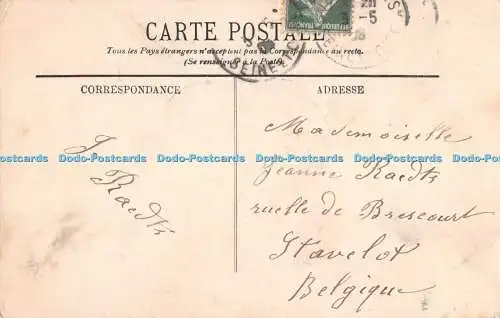 CARTE POSTALE
Tous les Pays étrangers n'acceptent pas la Correspondance au recto.
(Se renseigner à la Poste).
CORRESPONDANCE
ADRESSE
Mademoiselle
Jeanne Raedts
ruelle de Brescourt
Stavelot
Belgique
J Raedts
Dodo-Postcards Dodo-Postcards Dodo-Postcards Dodo-Postcards Dodo-Postcards
Dodo-Postcards Dodo-Postcards Dodo-Postcards Dodo-Postcards